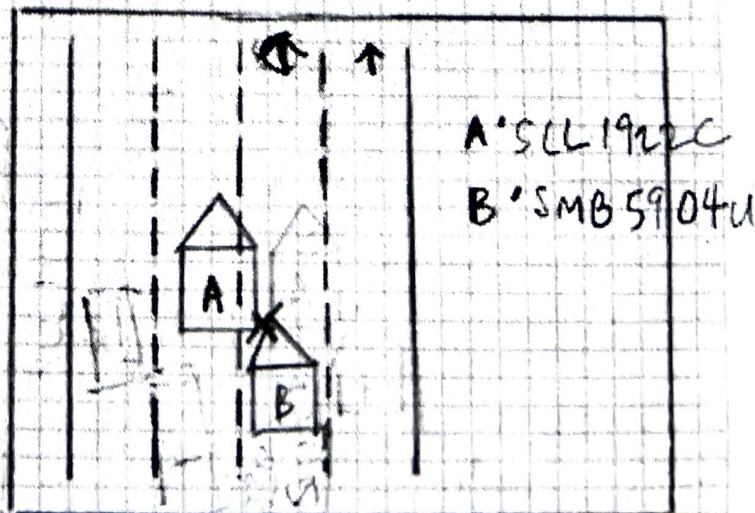 A SLL1922C
B SMB5904U
A
B